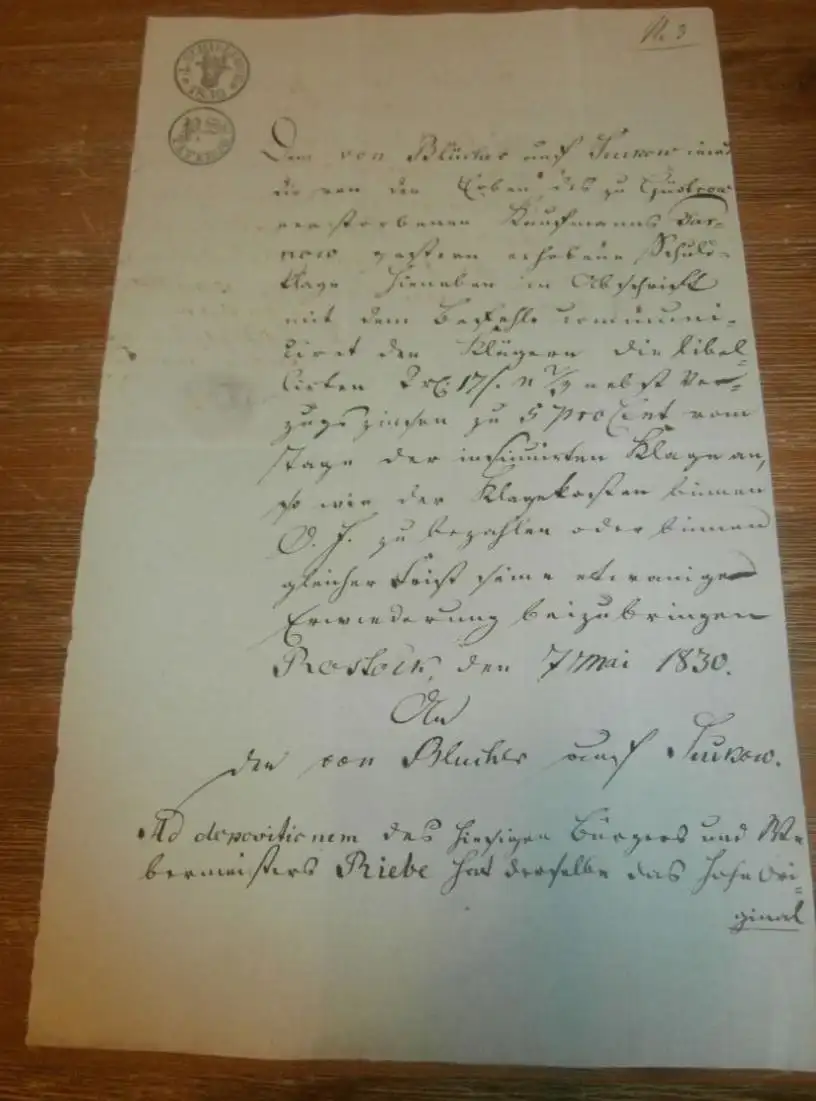 N. 3
SCHILLING
1830
Dem von Blücher auf Suckow wird
die von den Erben des zu Güstrow
verstorbenen Kaufmanns Dar-
now gestern erhobene Schuld-
klage hieneben in Abschrift
mit dem Befehle communi-
ciret den Klägern die libel-
lirten 2 rt. 17 ß. N 2/3 nebst Ver-
zugszinsen zu 5 proCent vom
Tage der insinuirten Klage an,
so wie der Klagekosten binnen
O. F. zu bezahlen oder binnen
gleicher Frist seine etwanige
Erwiederung beizubringen
Rostock, den 7 Mai 1830.
An
den von Blücher auf Suckow.
Ad depositionem des hiesigen Bürgers und We-
bermeisters Riebe hat derselbe das hohe Ori-
ginal